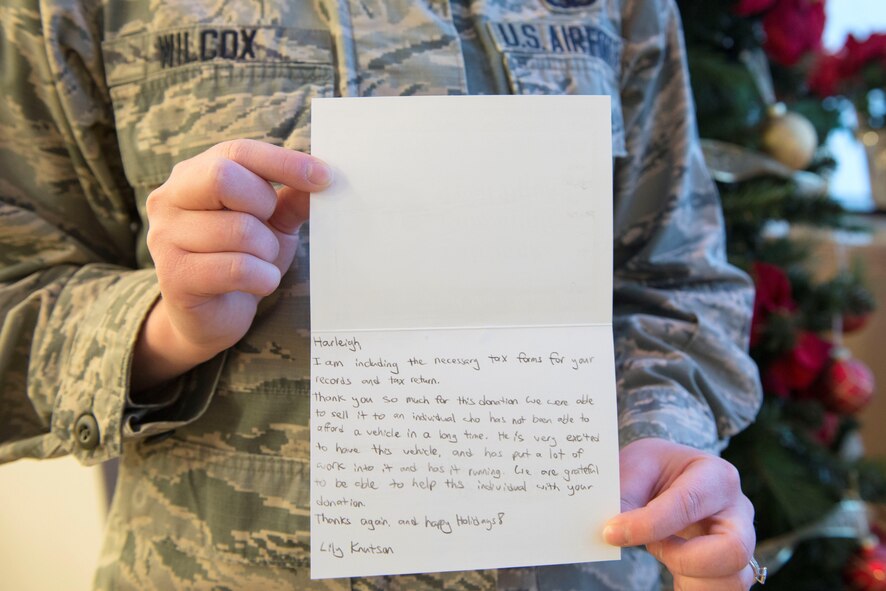 WILCOX
U.S. AIR FORCE
Harleigh
I am including the necessary tax forms for your
records and tax return.
Thank you so much for this donation we were able
to sell it to an individual who has not been able to
afford a vehicle in a long time. He is very excited
to have this vehicle, and has put a lot of
work into it and has it running. We are grateful
to be able to help this individual with your
donation.
Thanks again, and happy Holidays!
Lily Knutson